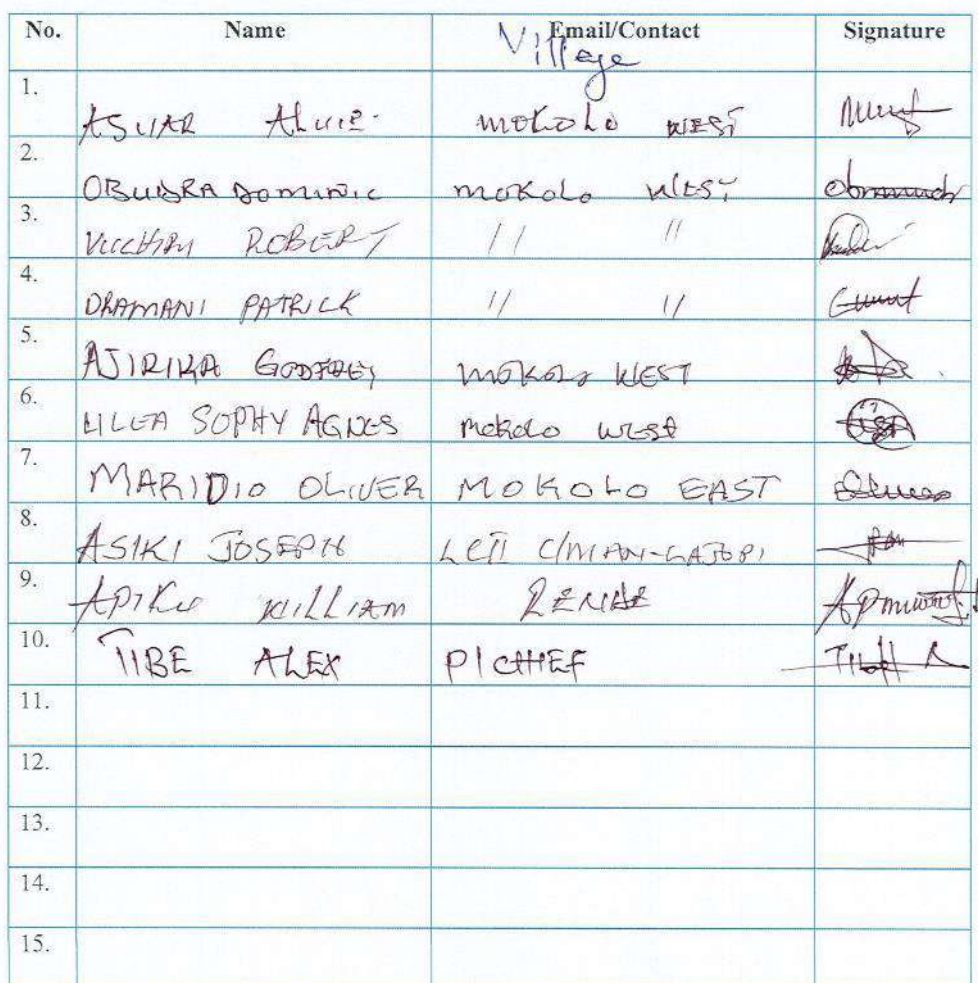 No. Name Email/Contact Signature
Village
1. ASUAR ALUIZ. MOKOLO WEST
2. OBUDRA DOMINIC MOKOLO WEST
3. ROBERT // //
4. DRAMANI PATRICK // //
5. AJIRIKA GODFREY MOKOLO WEST
6. LILLA SOPHY AGNES MOKOLO WEST
7. MARIDIO OLIVER MOKOLO EAST
8. ASIKI JOSEPH LCII C/MAN-
9. APIKU WILLIAM
10. TIBE ALEX P/CHIEF
11.
12.
13.
14.
15.